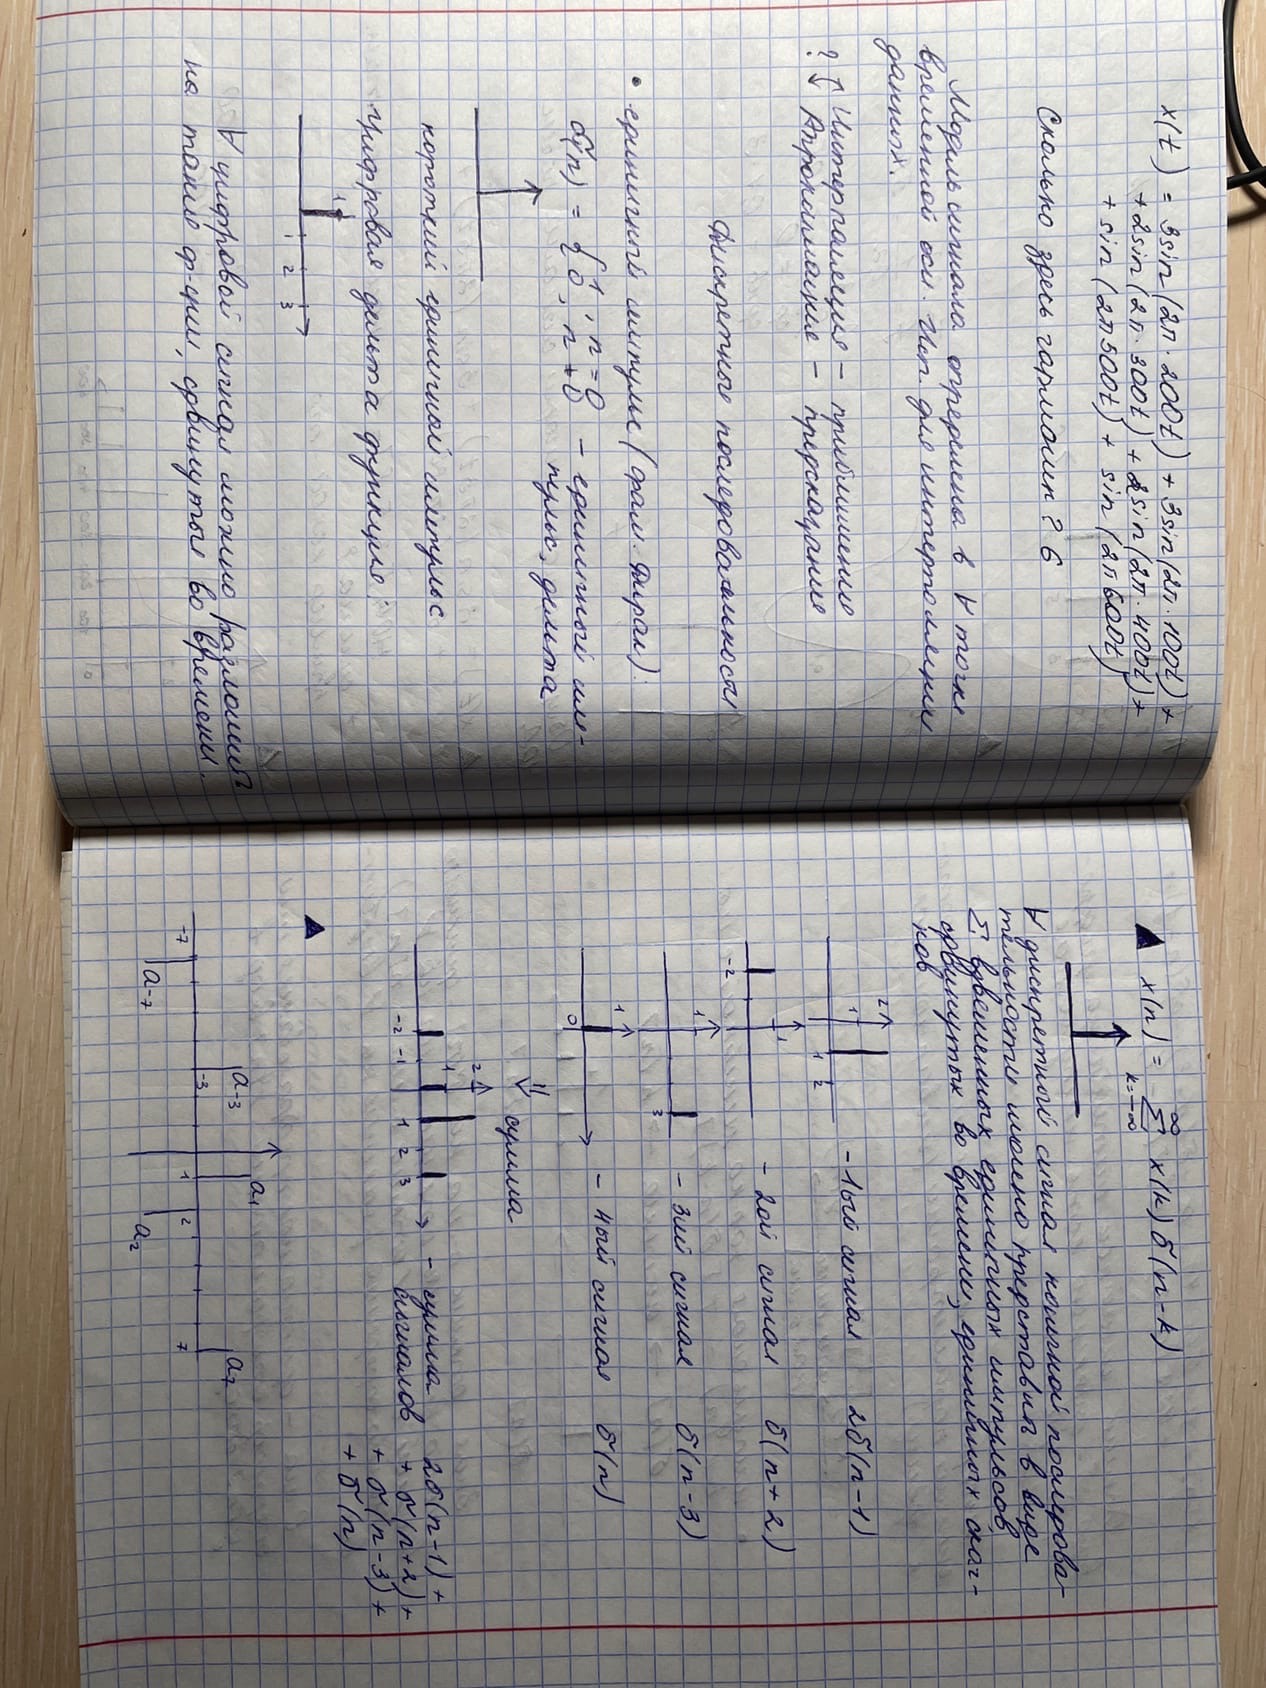 x(t) = 3sin(2π·200t) + 3sin(2π·100t) +
+ 2sin(2π·300t) + 2sin(2π·400t) +
+ sin(2π500t) + sin(2π600t)
Сколько здесь гармоник? 6
Модель сигнала определена в ∀ точке
временной оси. Исп. для интерполляции
данных.
? Интерполляция – приближение
Апроксимация – предсказание
Дискретные последовательности
• единичный импульс (фам. Дирак):
δ(n) = { 1, n = 0
0, n ≠ 0 – единичный им-
пульс, дельта
короткий единичный импульс
Цифровая дельта функция:
1
1 2 3
∀ цифровой сигнал можно разложить
на такие ф-ции, сдвинутые во времени.
▲ x(n) = ∑ x(k) δ(n-k)
k=-∞ ∞
∀ дискретный сигнал конечной последова-
тельности можно представить в виде
Σ взвешенных единичных импульсов,
сдвинутых во времени, единичных скач-
ков
2
1
1 2
– 1ый сигнал 2δ(n-1)
1
-2
– 2ой сигнал δ(n+2)
1
3
– 3ий сигнал δ(n-3)
1
0
– 4ый сигнал δ(n)
⇓ сумма
2
1
-2 -1 1 2 3
– сумма 2δ(n-1) +
сигналов + δ(n+2) +
+ δ(n-3) +
+ δ(n)
▲
a₋₃ a₁ a₇
-7 -3 1 2 7
a₋₇ a₂